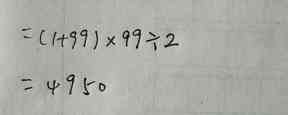 =(1+99)×99÷2
=4950